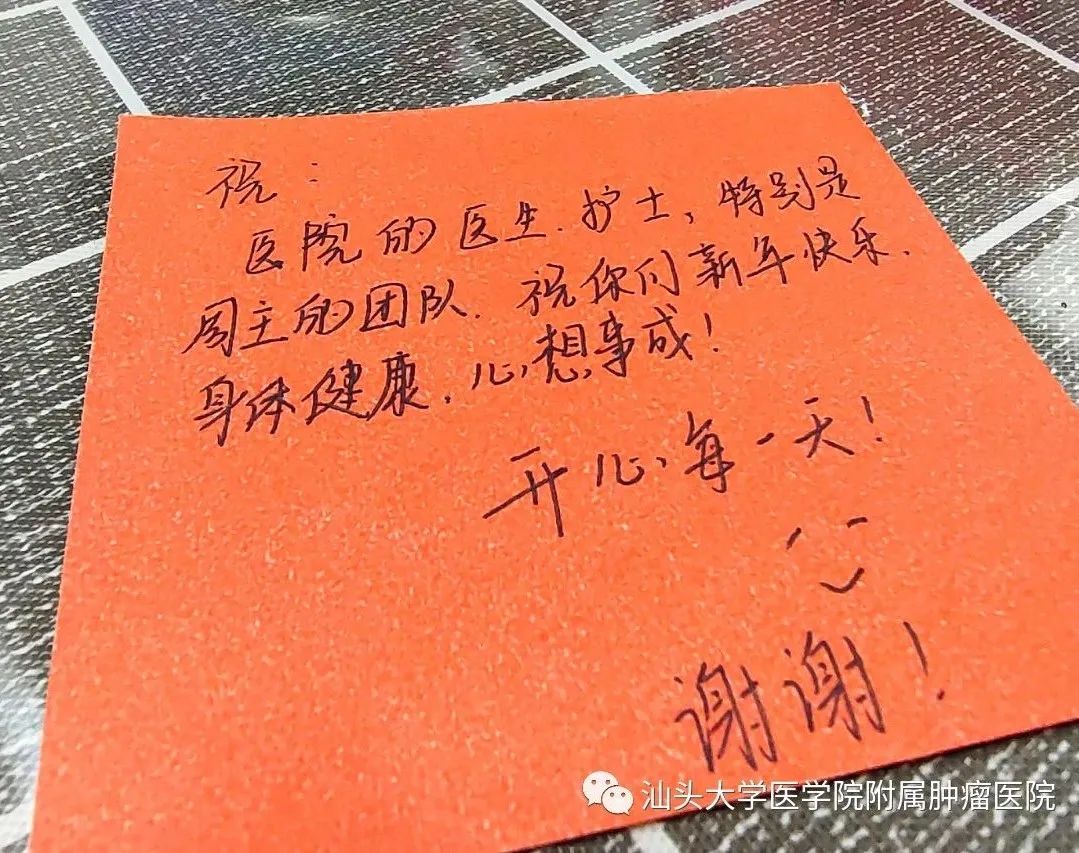 祝：
医院的医生、护士，特别是
周主的团队、祝你们新年快乐、
身体健康、心想事成！
开心每一天！
谢谢！
汕头大学医学院附属肿瘤医院